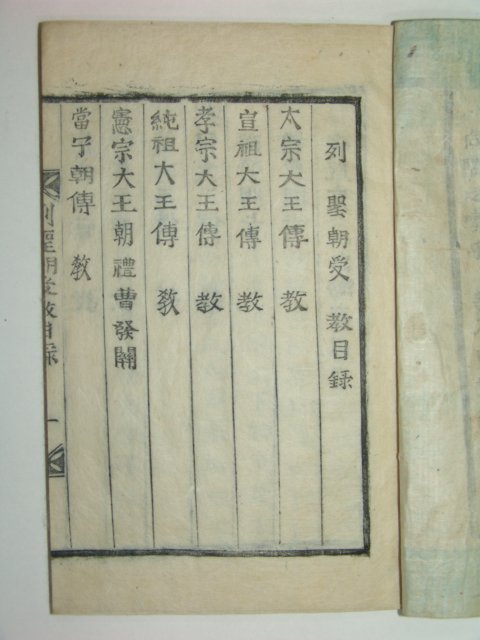 列聖朝受教目錄
太宗大王傳教
宣祖大王傳教
孝宗大王傳教
純祖大王傳教
憲宗大王朝禮曹發關
當宁朝傳教
列聖朝受教目錄 一